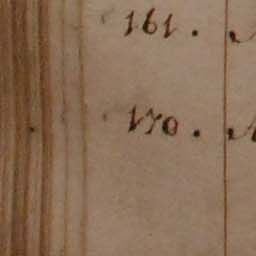 161.
170.